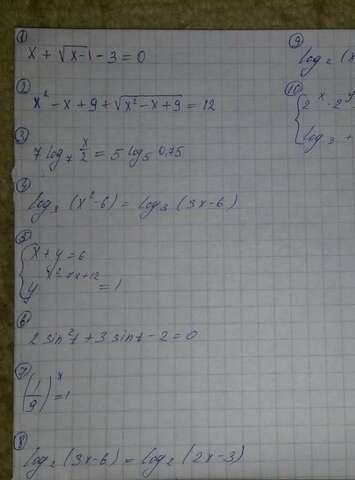 ① x + √(x-1) - 3 = 0
② x² - x + 9 + √(x² - x + 9) = 12
③ 7 log₇ x/2 = 5 log₅ 0,75
④ log₃ (x² - 6) = log₃ (3x - 6)
⑤ { x + y = 6
y^(x² + 7x + 12) = 1
⑥ 2 sin² t + 3 sin t - 2 = 0
⑦ (1/9)^x = 1
⑧ log₂ (3x - 6) = log₂ (2x - 3)
⑨ log₂ (x
⑩ { 2^x · 2^y
log₃ +